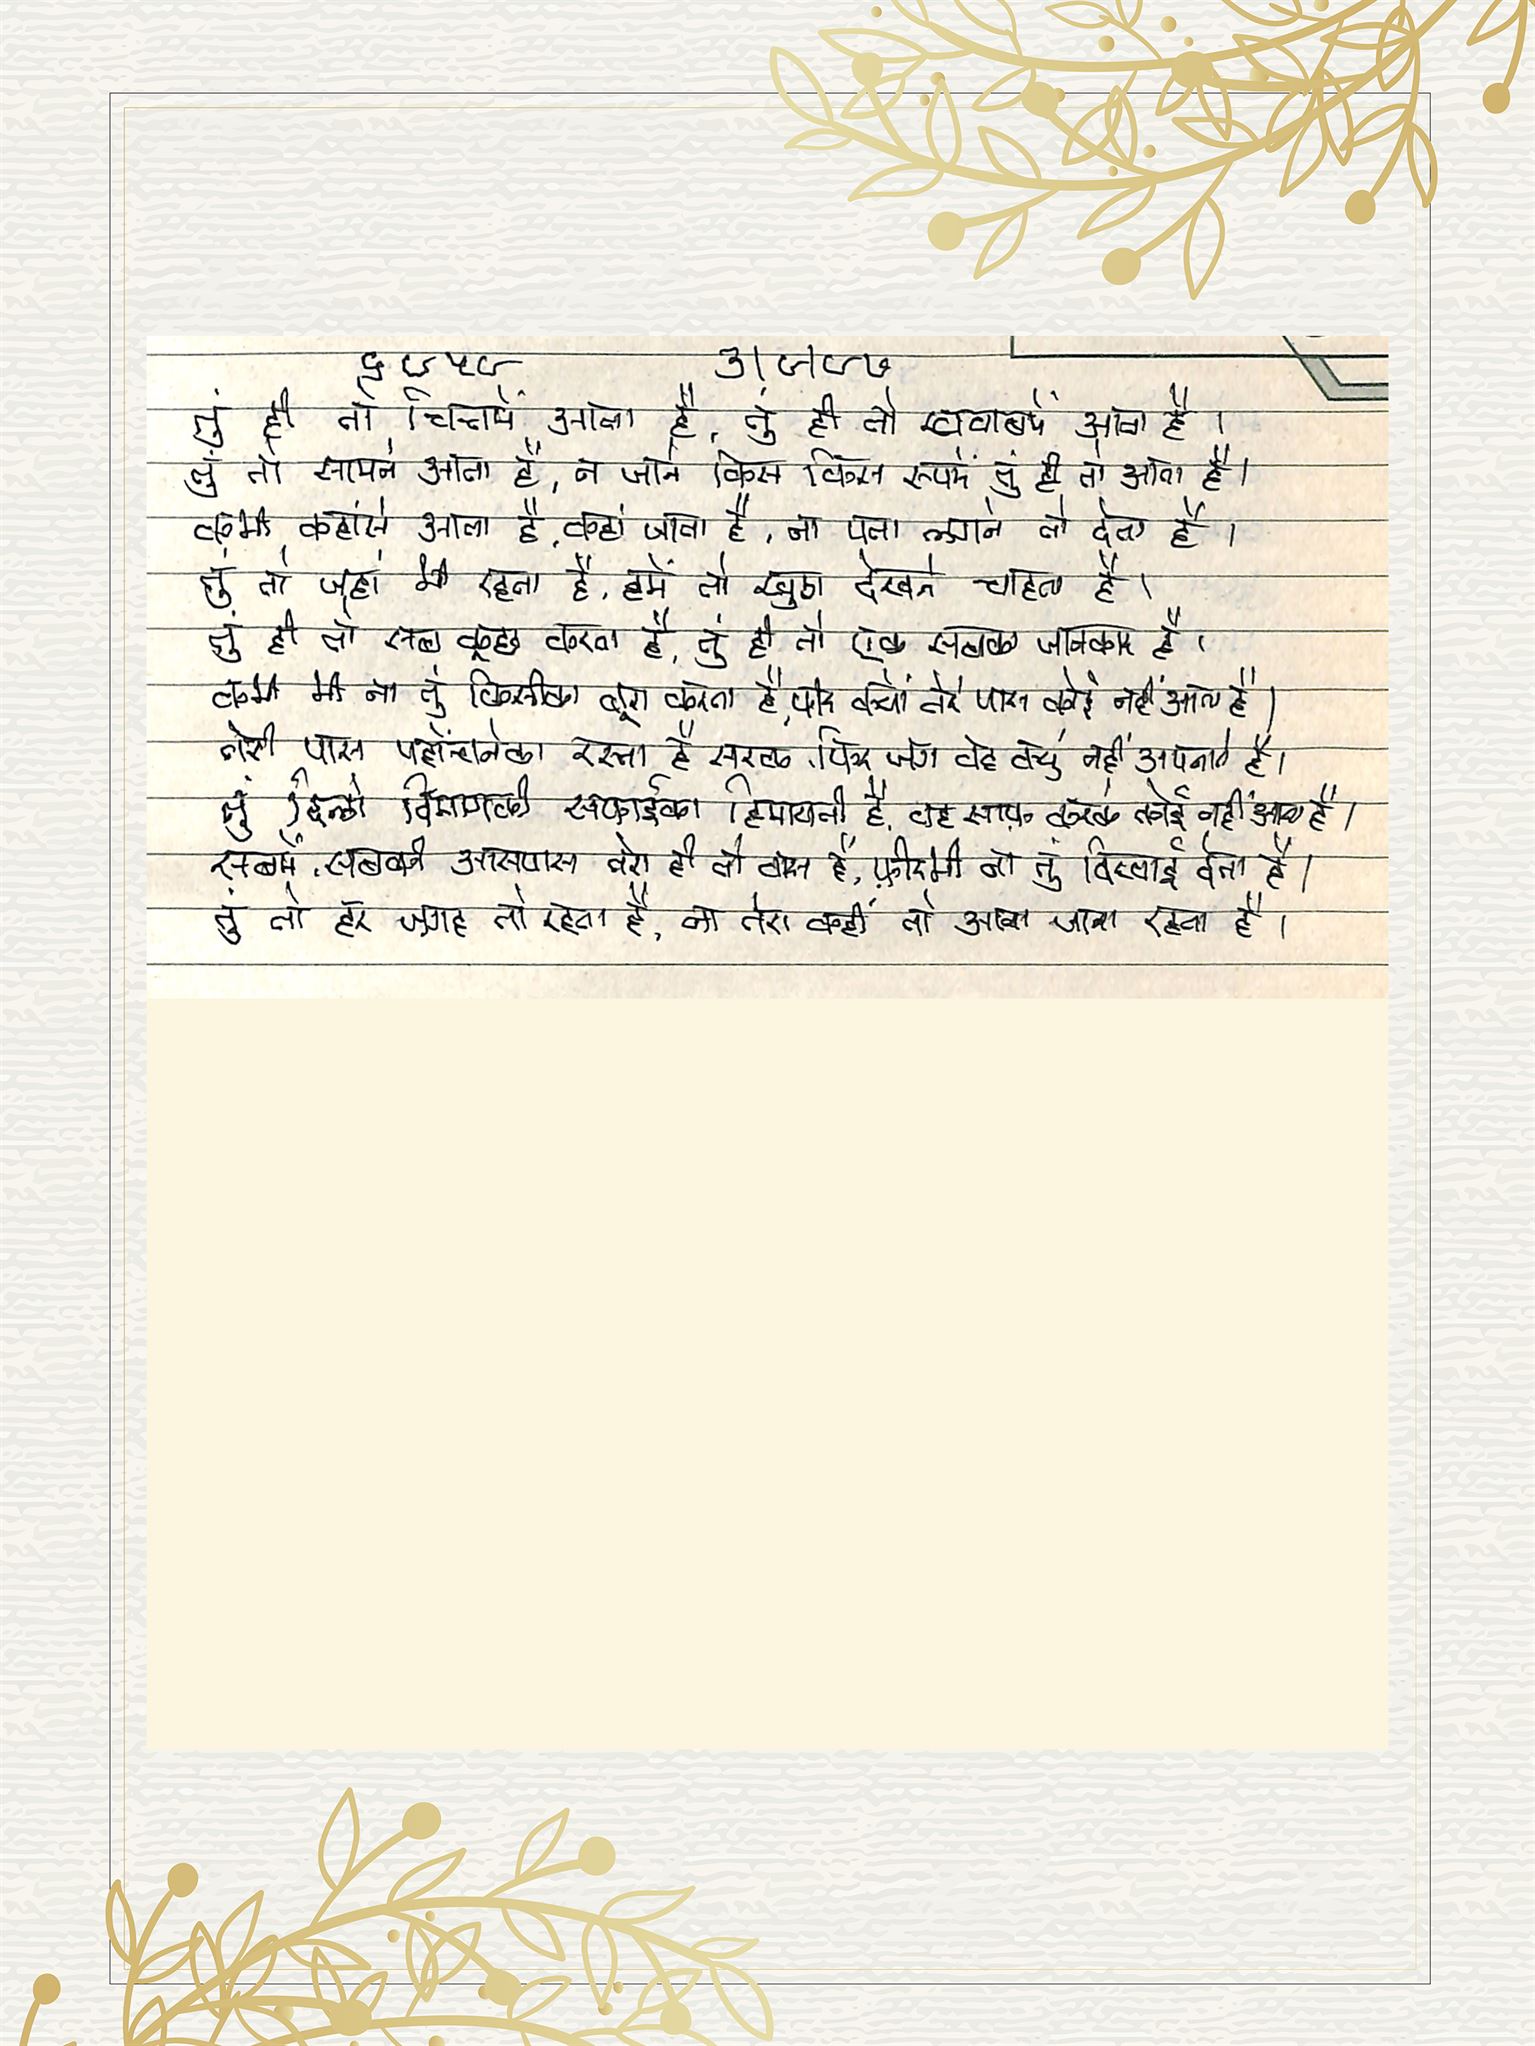 तुं ही तो चित्तमें आता है, तुं ही तो ख्वाबमें आता है ।
तुं तो सामने आता है, न जाने किस किस रूपमें तुं ही तो आता है ।
कभी कहांसे आता है, कहां जाता है, ना पता लगाने तो देता है ।
तुं तो जहां भी रहता है, हमें तो खुश देखने चाहता है ।
तुं ही तो सब कूछ करता है, तुं ही तो एक सबका जानकार है ।
कभी भी ना तुं किसीका बूरा करता है, फीर क्यों तेरे पास कोई नहीं आता है ।
तेरी पास पहोंचनेका रस्ता है सरल, फिर जग वोह क्युं नहीं अपनाते है ।
तुं दिलो दिमागकी सफाईका हिमायती है, वह साफ़ करके कोई नहीं आता है ।
सबमें, सबकी आसपास तेरा ही तो वास है, फ़ीरभी ना तुं दिखाई देता है ।
तुं तो हर जगह तो रहता है, ना तेरा कहीं तो आना जाना रहता है ।